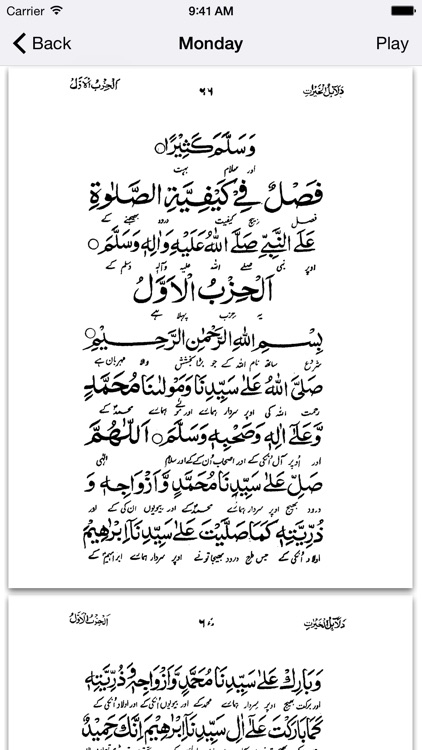 Carrier 9:41 AM
Back Monday Play
دلائل الخيرات ٦٦ الحزب الاول
وَسَلَّمَ كَثِيْرًا
اور سلام بہت
فَصْلٌ فِيْ كَيْفِيَّةِ الصَّلٰوةِ
فصل بیچ کیفیت درود بھیجنے کے
عَلَى النَّبِيِّ صَلَّى اللهُ عَلَيْهِ وَاٰلِهٖ وَسَلَّمَ
اوپر نبی صلے اللہ علیہ وآلہ وسلم کے
اَلْحِزْبُ الْاَوَّلُ
یہ حزب پہلا ہے
بِسْمِ اللهِ الرَّحْمٰنِ الرَّحِيْمِ
شروع ساتھ نام اللہ کے جو بڑا بخشش والا مہربان ہے
صَلَّى اللهُ عَلٰى سَيِّدِنَا وَمَوْلٰىنَا مُحَمَّدٍ
رحمت اللہ کی اوپر سردار ہمارے اور ہمارے محمدؐ کے
وَّعَلٰى اٰلِهٖ وَصَحْبِهٖ وَسَلَّمَ اَللّٰهُمَّ
اور اوپر آل انکی کے اور اصحاب اُن کے کے اور سلام الٰہی
صَلِّ عَلٰى سَيِّدِنَا مُحَمَّدٍ وَّاَزْوَاجِهٖ وَ
درود بھیج اوپر سردار ہمارے محمدؐ کے اور بیویوں ان کی کے اور
ذُرِّيَّتِهٖ كَمَا صَلَّيْتَ عَلٰى سَيِّدِنَا اِبْرٰهِيْمَ
اولاد اُنکی کے جس طرح درود بھیجا تونے اوپر سردار ہمارے ابراہیمؑ کے
دلائل الخيرات الحزب الاول
وَبَارِكْ عَلٰى سَيِّدِنَا مُحَمَّدٍ وَّاَزْوَاجِهٖ وَذُرِّيَّتِهٖ
اور برکت بھیج اوپر سردار ہمارے محمدؐ کے اور بیویوں اُنکی کے اور اولاد اُنکی کے
كَمَا بَارَكْتَ عَلٰى اٰلِ سَيِّدِنَا اِبْرٰهِيْمَ اِنَّكَ حَمِيْدٌ